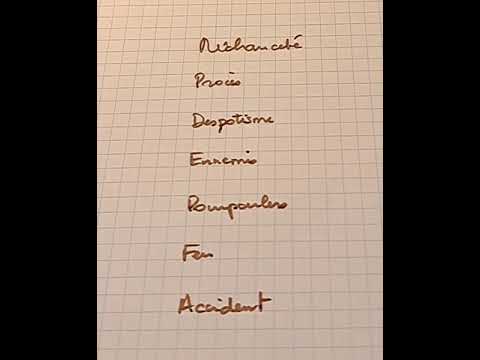 Méchanceté
Procès
Despotisme
Ennemis
Pourparlers
Feu
Accident